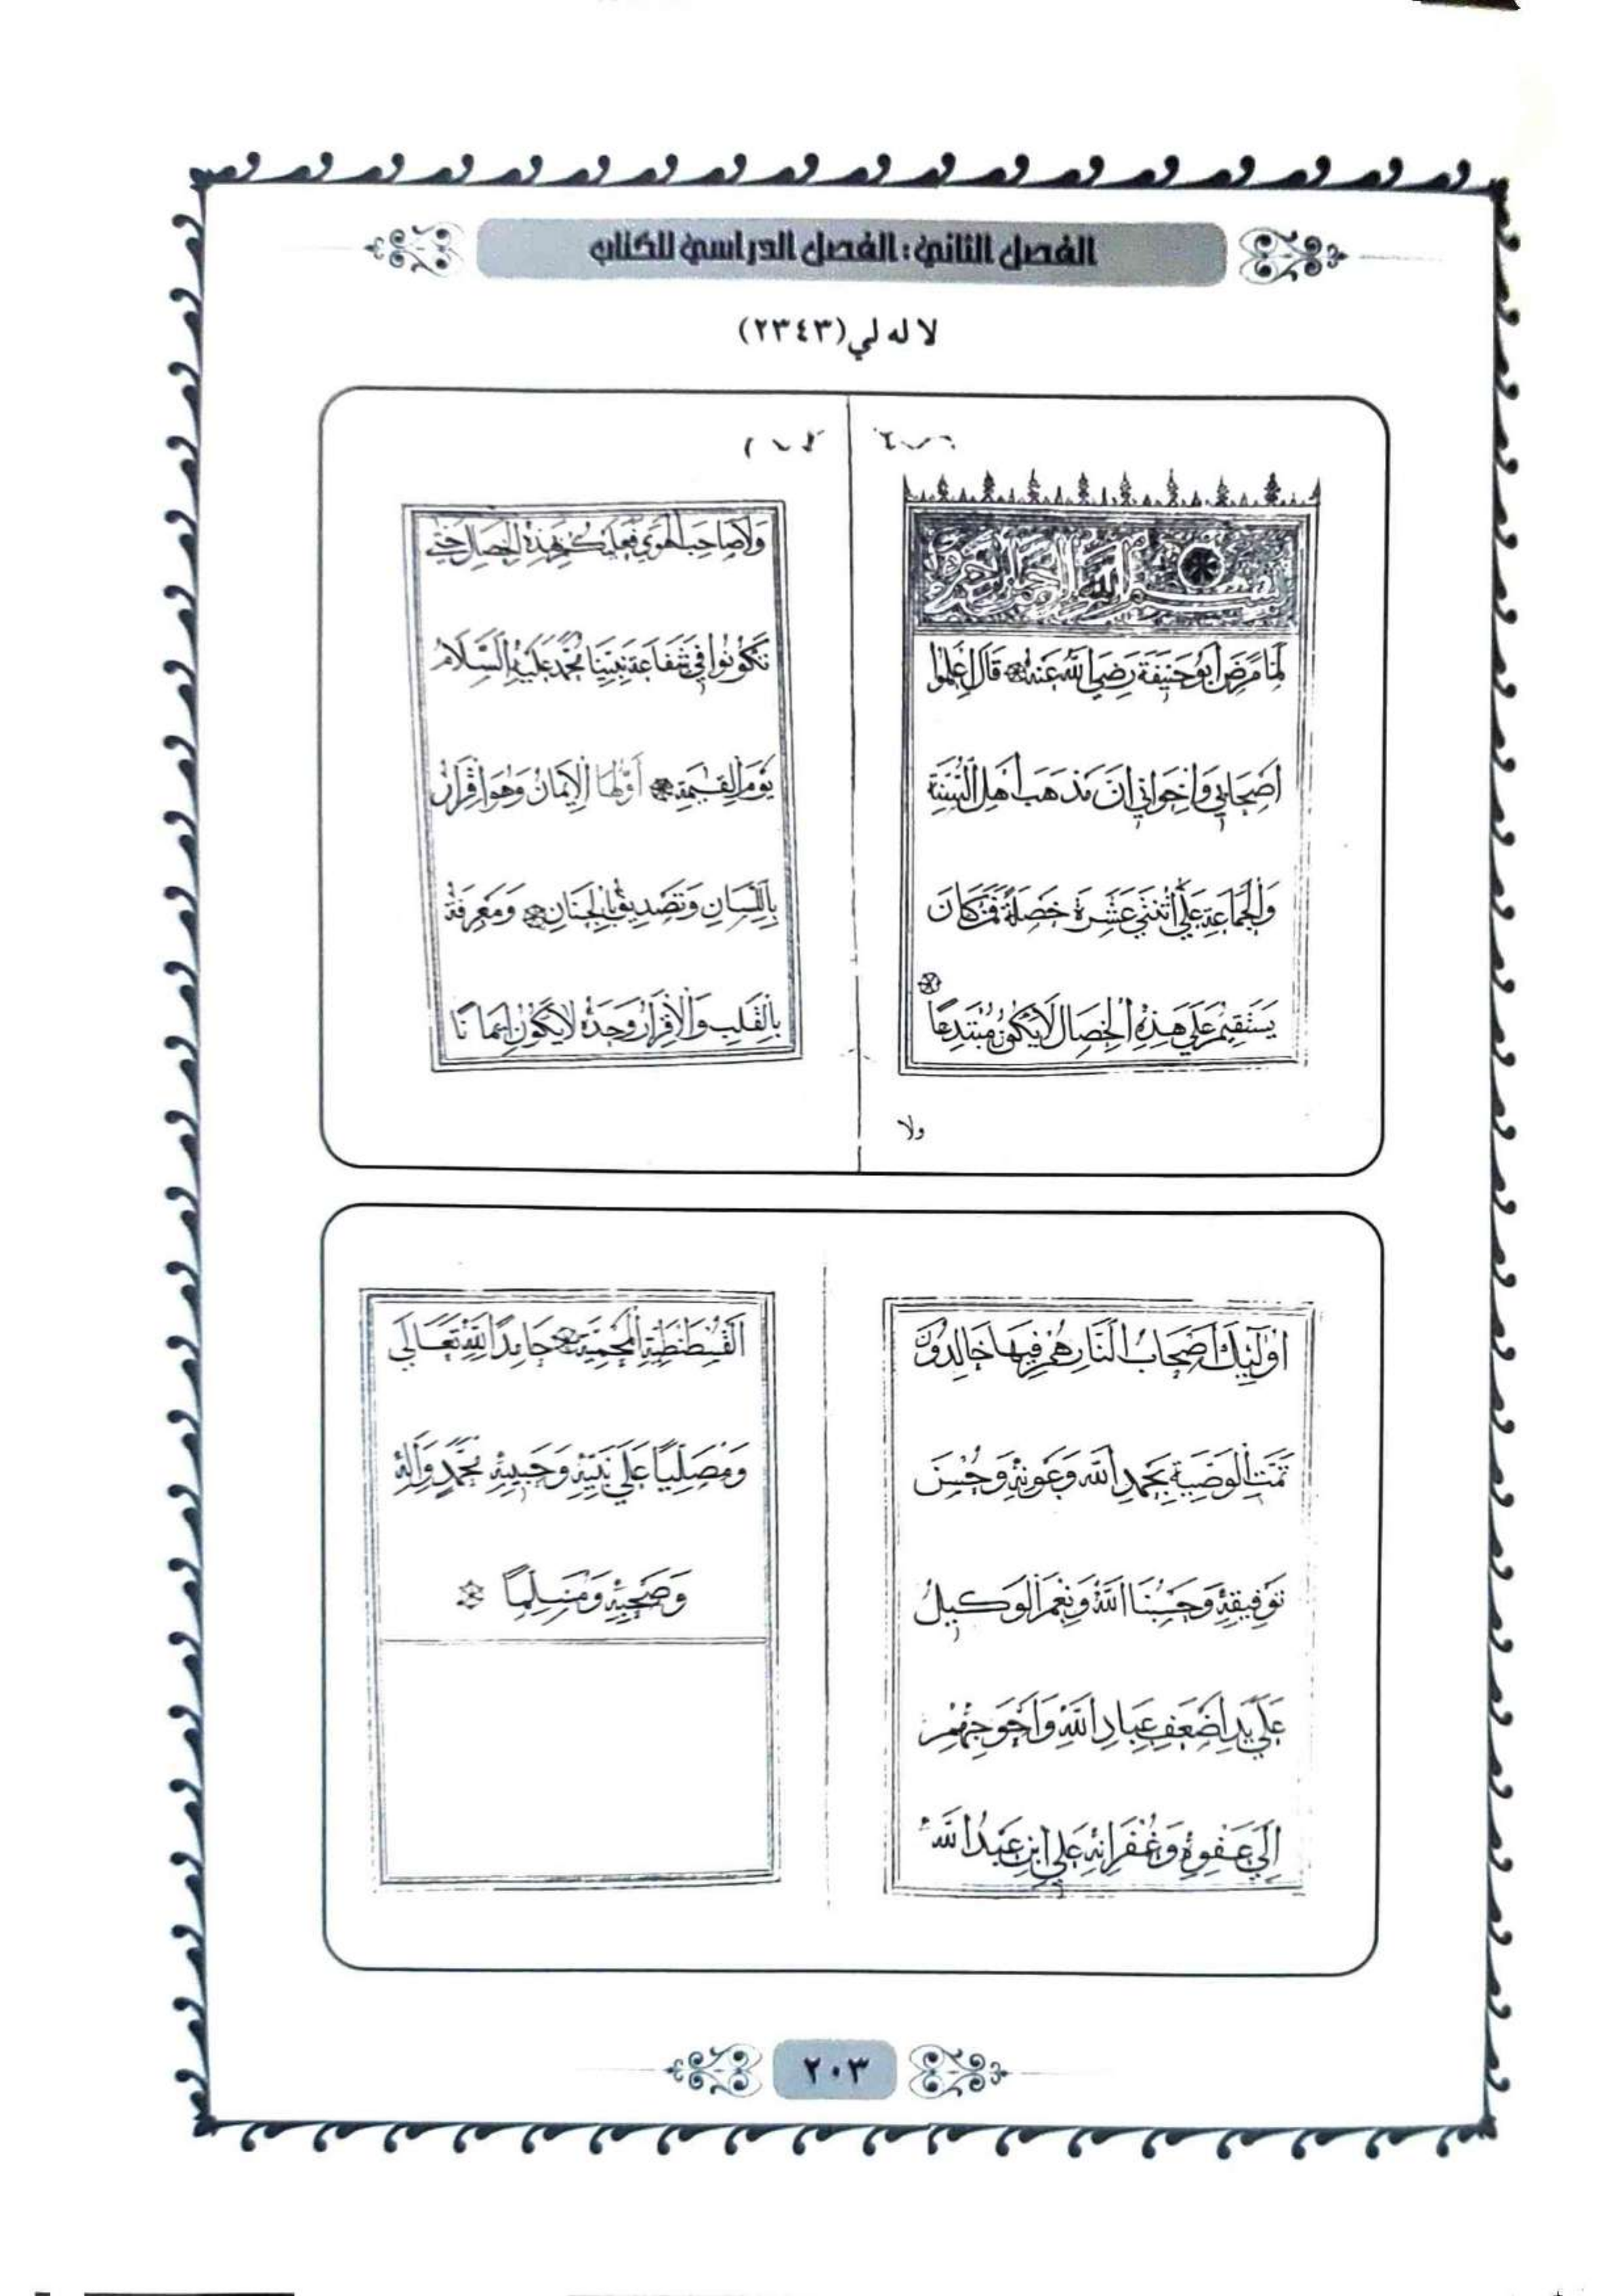 الفصل الثاني: الفصل الدراسي للكتاب
لا له لي (٢٣٤٣)
بسم الله الرحمن الرحيم
لَمَّا مَرِضَ أَبُو حَنِيفَةَ رَضِيَ اللهُ عَنْهُ قَالَ اعْلَمُوا
أَصْحَابِي وَإِخْوَانِي أَنَّ مَذْهَبَ أَهْلِ السُّنَّةِ
وَالْجَمَاعَةِ عَلَى اثْنَتَيْ عَشْرَةَ خَصْلَةً فَمَنْ كَانَ
يَسْتَقِيمُ عَلَى هَذِهِ الْخِصَالِ لَا يَكُونُ مُبْتَدِعًا
ولا
وَلَا صَاحِبَ الْهَوَى فَعَلَيْكُمْ بِهَذِهِ الْخِصَالِ حَتَّى
تَكُونُوا فِي شَفَاعَةِ نَبِيِّنَا مُحَمَّدٍ عَلَيْهِ السَّلَامُ
يَوْمَ الْقِيٰمَةِ أَوَّلُهَا الْإِيمَانُ وَهُوَ إِقْرَارٌ
بِاللِّسَانِ وَتَصْدِيقٌ بِالْجَنَانِ وَمَعْرِفَةٌ
بِالْقَلْبِ وَالْإِقْرَارُ وَحْدَهُ لَا يَكُونُ إِيمَانًا
أُولَٰئِكَ أَصْحَابُ النَّارِ هُمْ فِيهَا خَالِدُونَ
تَمَّتِ الْوَصِيَّةُ بِحَمْدِ اللهِ وَعَوْنِهِ وَحُسْنِ
تَوْفِيقِهِ وَحَسْبُنَا اللهُ وَنِعْمَ الْوَكِيلُ
عَلَى يَدِ أَضْعَفِ عِبَادِ اللهِ وَأَحْوَجِهِمْ
إِلَى عَفْوِهِ وَغُفْرَانِهِ عَلِي ابْنِ عَبْدُ اللهِ
الْقُسْطَنْطِيَّةِ الْمَحْمِيَّةِ حَامِدًا لِلَّهِ تَعَالَى
وَمُصَلِّيًا عَلَى نَبِيِّهِ وَحَبِيبِهِ مُحَمَّدٍ وَآلِهِ
وَصَحْبِهِ وَمُسَلِّمًا
٢٠٣